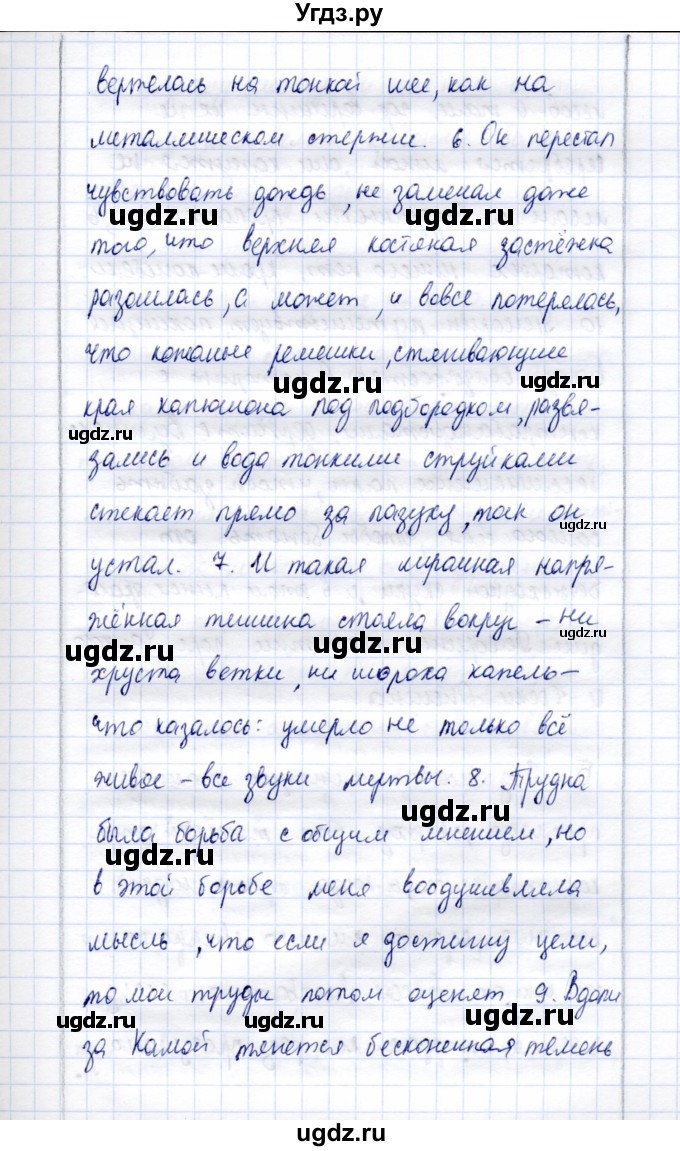 Угдз.ру
вертелась на тонкой шее, как на
металлическом стержне. 6. Он перестал
чувствовать дождь, не замечал даже
ugdz.ru ugdz.ru
того, что верхняя костяная застёжка
разошлась, а может, и вовсе потерялась,
что кожаные ремешки, стягивающие
ugdz.ru
края капюшона под подбородком, развя-
ugdz.ru
зались и вода тонкими струйками
стекает прямо за пазуху, так он
ugdz.ru
устал. 7. И такая мрачная напря-
жённая тишина стояла вокруг – ни
ugdz.ru ugdz.ru ugdz.ru
хруста ветки, ни шороха капель –
что казалось: умерло не только всё
живое – все звуки мертвы. 8. Трудна
ugdz.ru
была борьба с общим мнением, но
ugdz.ru
в этой борьбе меня воодушевляла
мысль, что если я достигну цели,
то мои труды потом оценят 9. Вдали
ugdz.ru ugdz.ru ugdz.ru ugdz.ru
за Камой тянется бесконечная темень
ugdz.ru